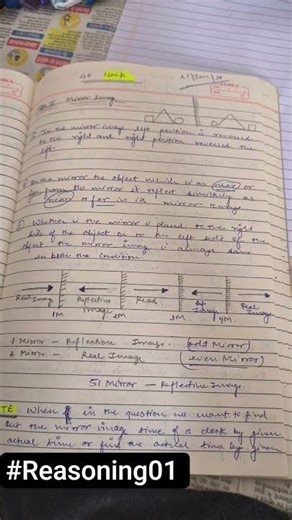 Go Back
Mirror Image
① In the mirror image left position is reversed
to the right and right position reversed the
left.
② In the mirror the object which is as near or
far from the mirror it reflect similarly as
near or far in its mirror image.
③ Whether the mirror is placed to the right
side of the object or to the left side of the
object the mirror image is always same
in both the condition.
Real Image Reflective Image Real Ref. Image Real Image
1M 2M 3M 4M
1 Mirror – Reflective Image. (odd Mirror)
2 Mirror – Real Image (even Mirror)
51 Mirror – Reflective Image.
TE When in the question we want to find
out the mirror image time of a clock by given
actual time or find the actual time by given
#Reasoning01